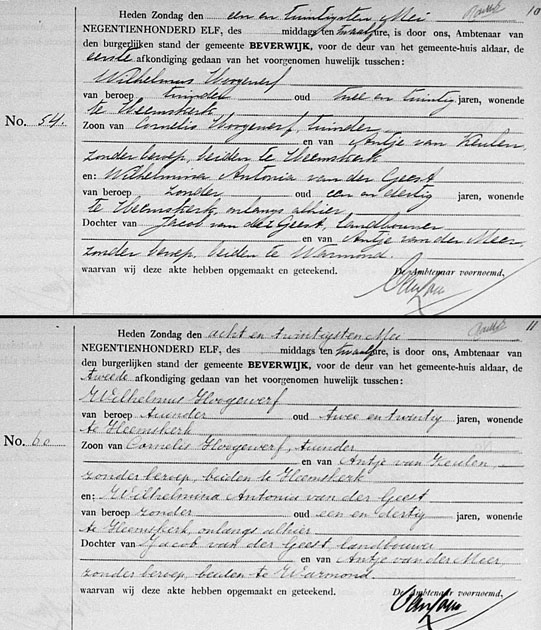 Heden Zondag den een en twintigsten Mei 10
NEGENTIENHONDERD ELF, des middags ten twaalf ure, is door ons, Ambtenaar van
den burgerlijken stand der gemeente BEVERWIJK, voor de deur van het gemeente-huis aldaar, de
eerste afkondiging gedaan van het voorgenomen huwelijk tusschen:
Wilhelmus Hoogewerf
van beroep tuinder oud twee en twintig jaren, wonende
te Heemskerk
No. 54. Zoon van Cornelis Hoogewerf, tuinder
en van Antje van Keulen,
zonder beroep, beiden te Heemskerk
en: Wilhelmina Antonia van der Geest
van beroep zonder oud een en dertig jaren, wonende
te Heemskerk, onlangs alhier
Dochter van Jacob van der Geest, landbouwer
en van Antje van der Meer,
zonder beroep, beiden te Warmond.
waarvan wij deze akte hebben opgemaakt en geteekend. De Ambtenaar voornoemd.
Heden Zondag den acht en twintigsten Mei 11
NEGENTIENHONDERD ELF, des middags ten twaalf ure, is door ons, Ambtenaar van
den burgerlijken stand der gemeente BEVERWIJK, voor de deur van het gemeente-huis aldaar, de
tweede afkondiging gedaan van het voorgenomen huwelijk tusschen:
Wilhelmus Hoogewerf
van beroep tuinder oud twee en twintig jaren, wonende
te Heemskerk
No. 60 Zoon van Cornelis Hoogewerf, tuinder
en van Antje van Keulen,
zonder beroep, beiden te Heemskerk
en: Wilhelmina Antonia van der Geest
van beroep zonder oud een en dertig jaren, wonende
te Heemskerk, onlangs alhier
Dochter van Jacob van der Geest, landbouwer
en van Antje van der Meer,
zonder beroep, beiden te Warmond.
waarvan wij deze akte hebben opgemaakt en geteekend. De Ambtenaar voornoemd.